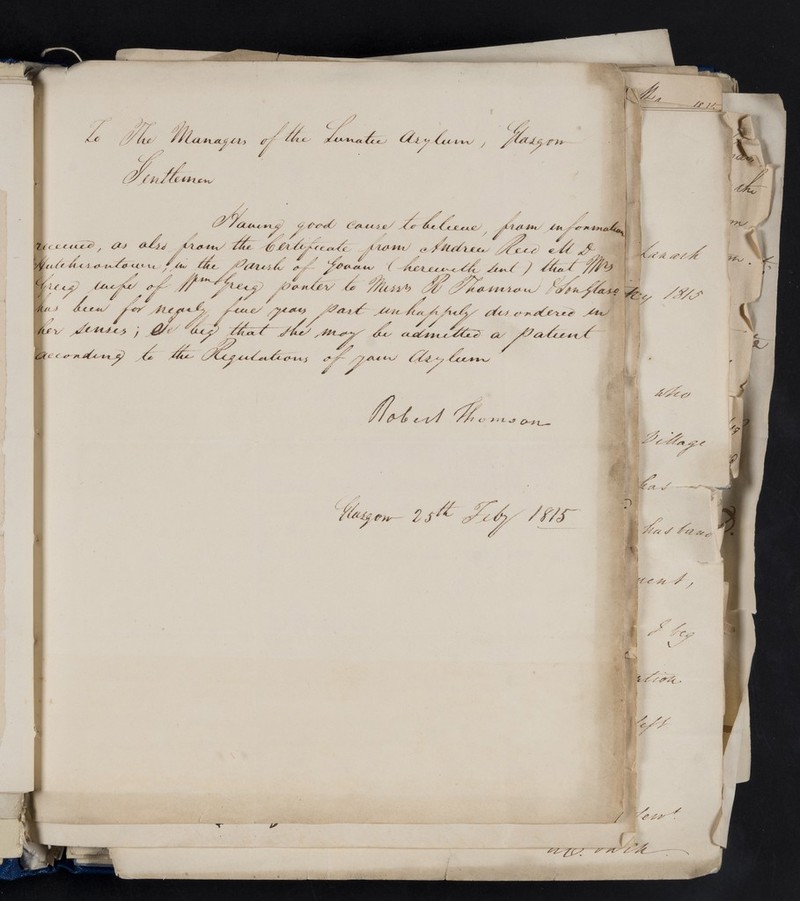 To The Managers of the Lunatic Asylum, Glasgow
Gentlemen
Having good cause to believe, from information
received, as also from the Certificate from Andrew Reid M D
Hutchesontown, in the Parish of Govan (herewith sent) that Mrs
Greig wife of Wm Greig porter to Messrs R Thomson & Son Glasg
has been for nearly five years past unhappily disordered in
her senses; I beg that she may be admitted a patient
according to the Regulations of your Asylum
Robert Thomson
Glasgow 25th Feby 1815
1815
who
Village
has
husband
I beg
left